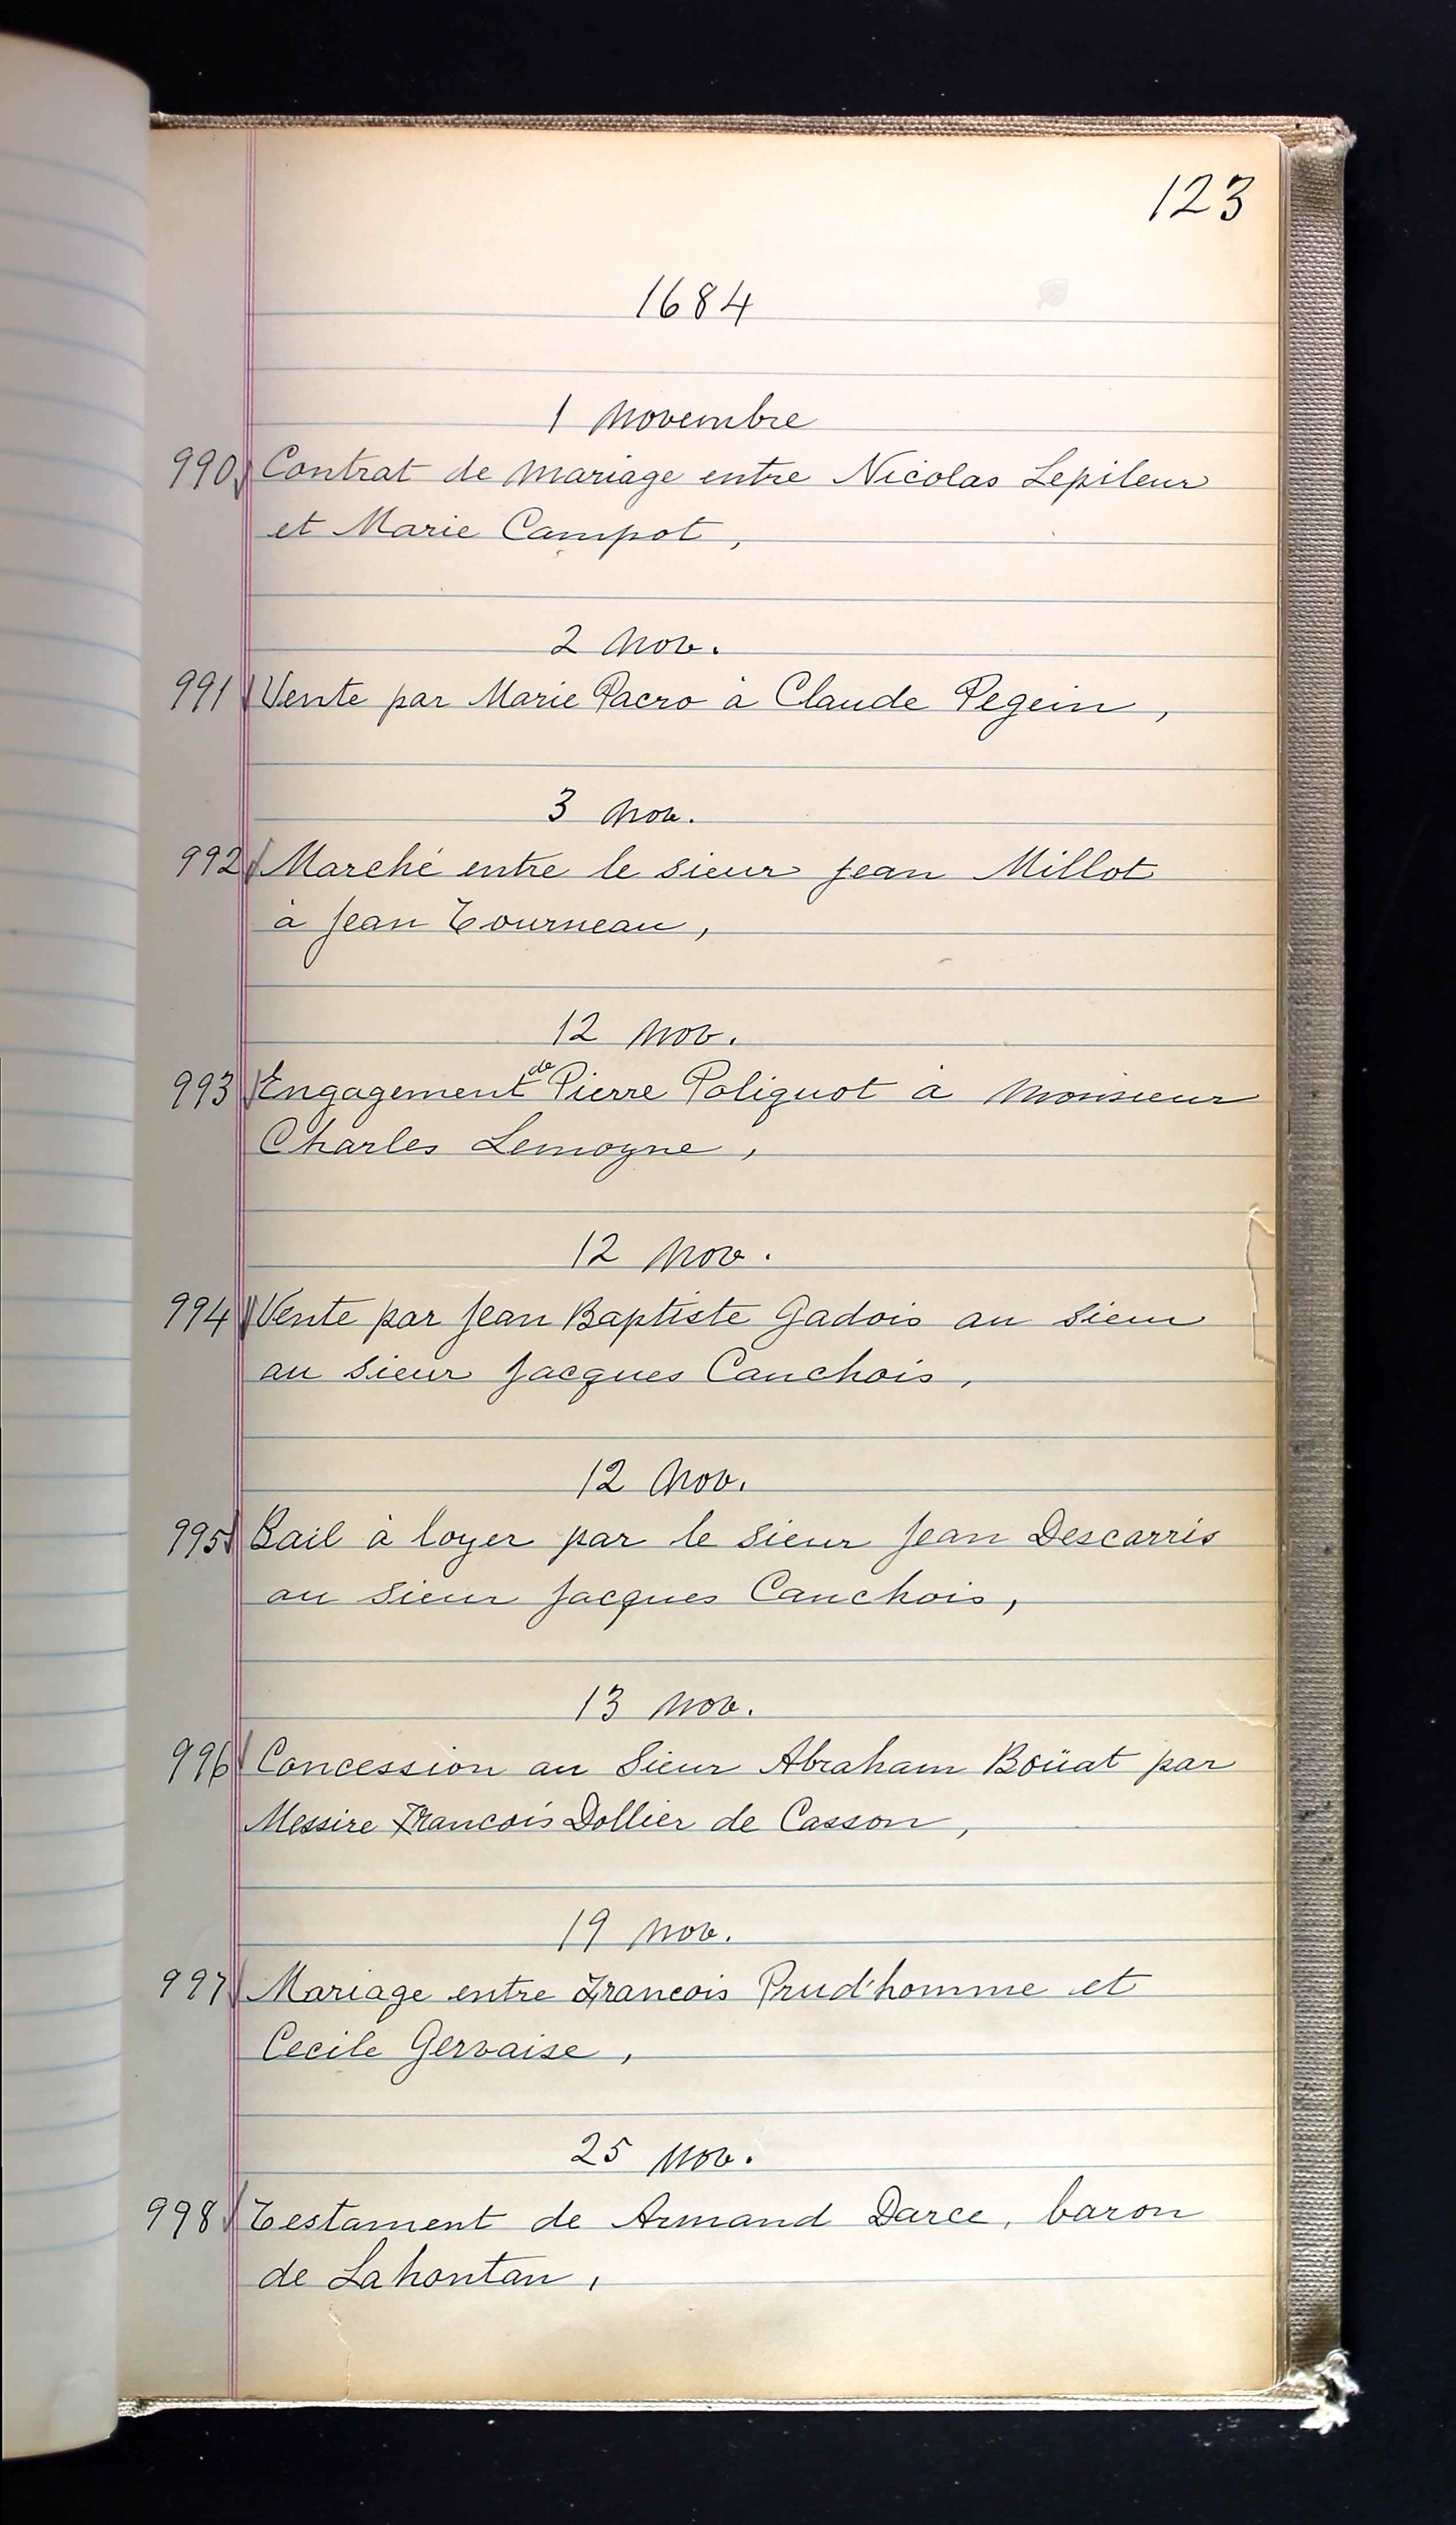 123
1684
1 Novembre
990 Contrat de Mariage entre Nicolas Lepileur
et Marie Campot,
2 Nov.
991 Vente par Marie Pacro à Claude Pegein,
3 Nov.
992 Marché entre le sieur Jean Millot
à Jean Tourneau,
12 Nov.
993 Engagement de Pierre Poliquot à Monsieur
Charles Lemoyne,
12 Nov.
994 Vente par Jean Baptiste Gadois au sieur
au sieur Jacques Cauchois,
12 Nov.
995 Bail à loyer par le sieur Jean Descarris
au sieur Jacques Cauchois,
13 Nov.
996 Concession au Sieur Abraham Boüat par
Messire Francois Dollier de Casson,
19 Nov.
997 Mariage entre Francois Prud'homme et
Cecile Gervaise,
25 Nov.
998 Testament de Armand Darce, baron
de Lahontan,